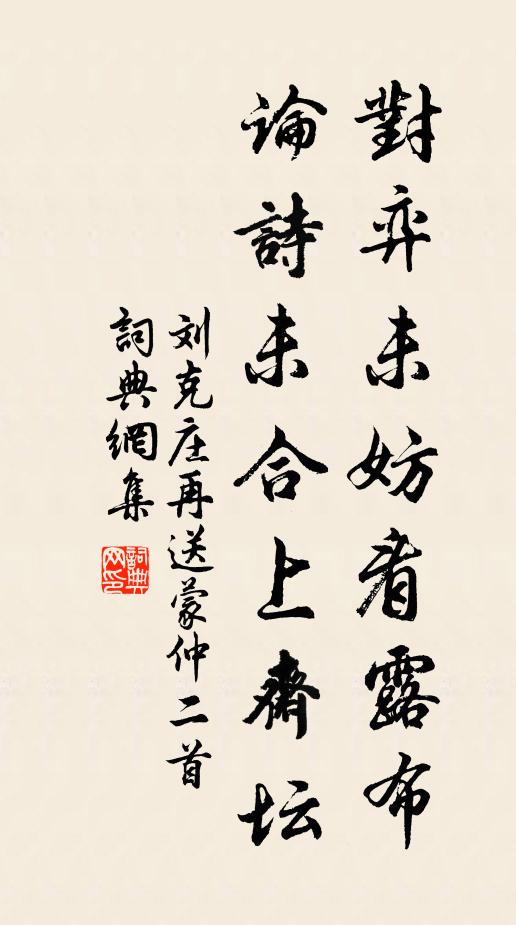 對弈未妨看露布
論詩未合上齋坛
刘克庄再送蒙仲二首
詞典網集
詞典網印